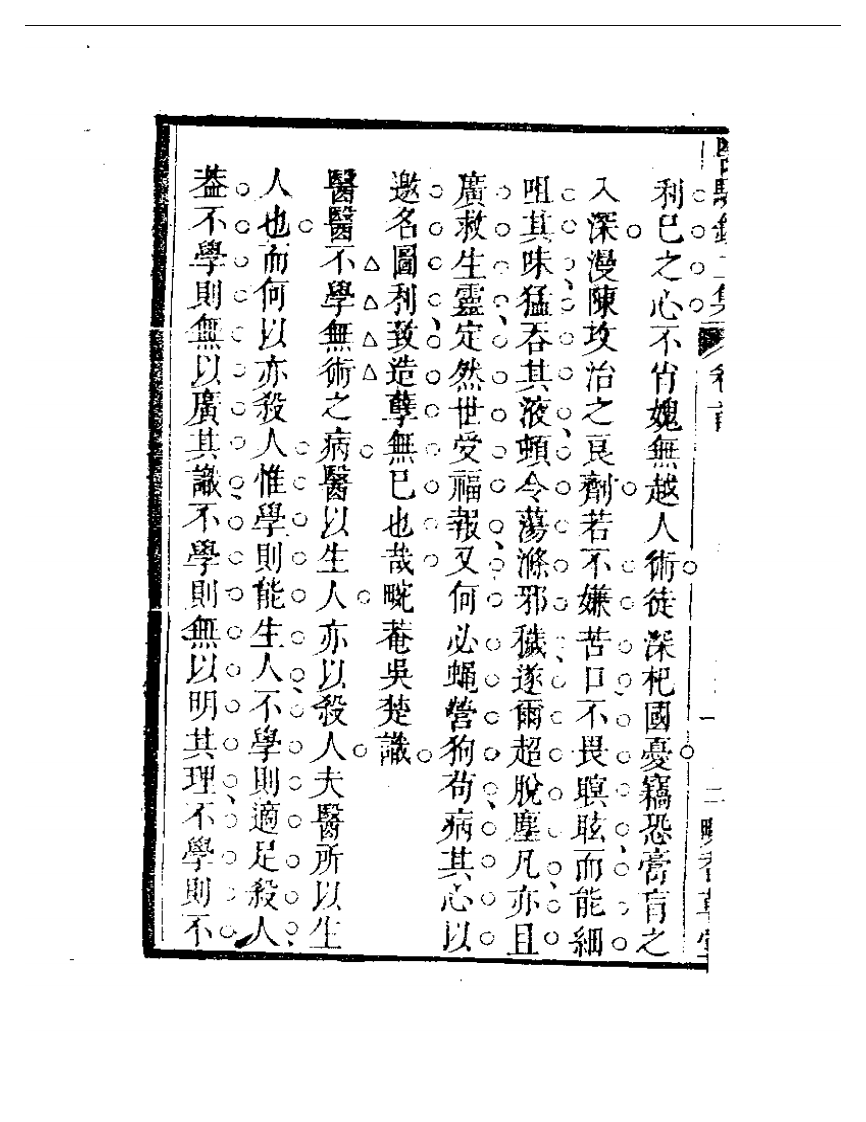 醫驗錄二集 卷首 二 畹香草堂
利已之心不肯媿無越人術徒深杞國憂竊恐膏肓之
入深漫陳攻治之良劑若不嫌苦口不畏瞑眩而能細
咀其味猛吞其液頓令蕩滌邪穢遂爾超脫塵凡亦且
廣救生靈定然世受福報又何必蝇營狗苟病其心以
邀名圖利致造孽無已也哉畹菴吳楚識
醫醫不學無術之病醫以生人亦以殺人夫醫所以生
人也而何以亦殺人惟學則能生人不學則適足殺人
葢不學則無以廣其識不學則無以明其理不學則不